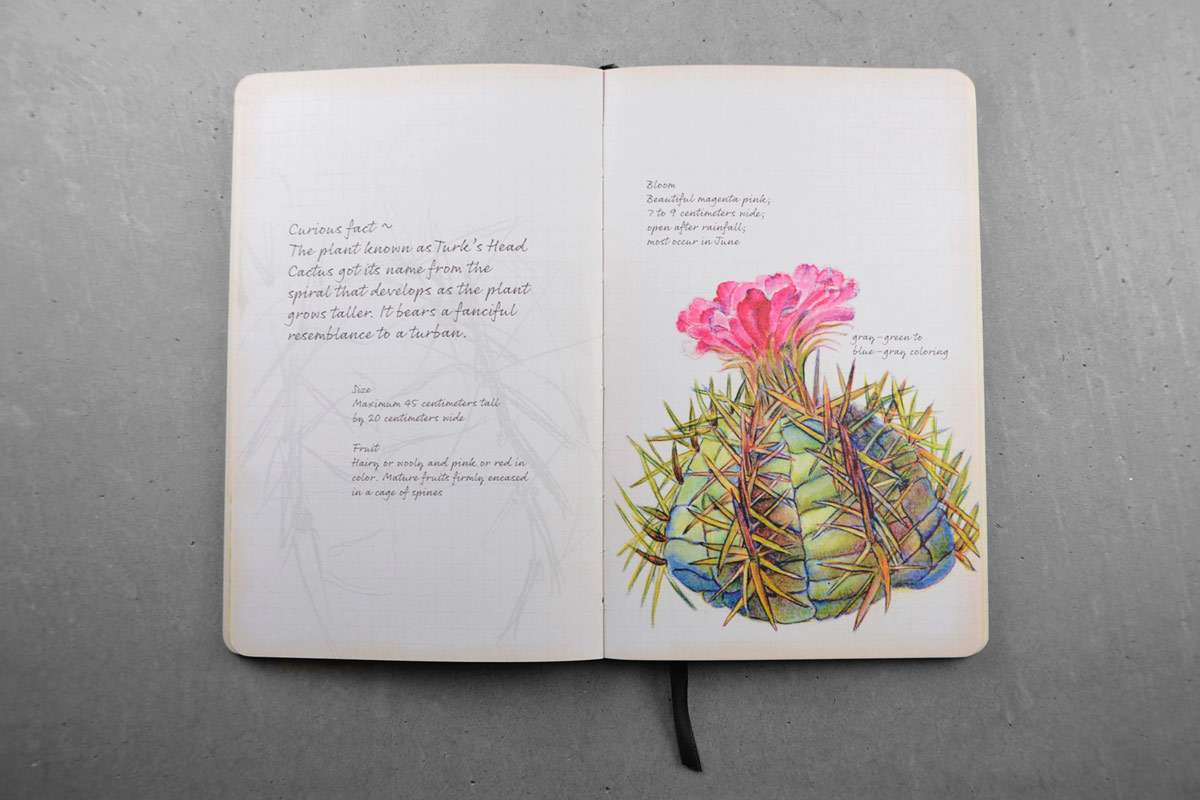 Curious fact ~
The plant known as Turk's Head
Cactus got its name from the
spiral that develops as the plant
grows taller. It bears a fanciful
resemblance to a turban.
Size
Maximum 45 centimeters tall
by 20 centimeters wide
Fruit
Hairy or wooly and pink or red in
color. Mature fruits firmly encased
in a cage of spines
Bloom
Beautiful magenta pink;
7 to 9 centimeters wide;
open after rainfall;
most occur in June
gray-green to
blue-gray coloring